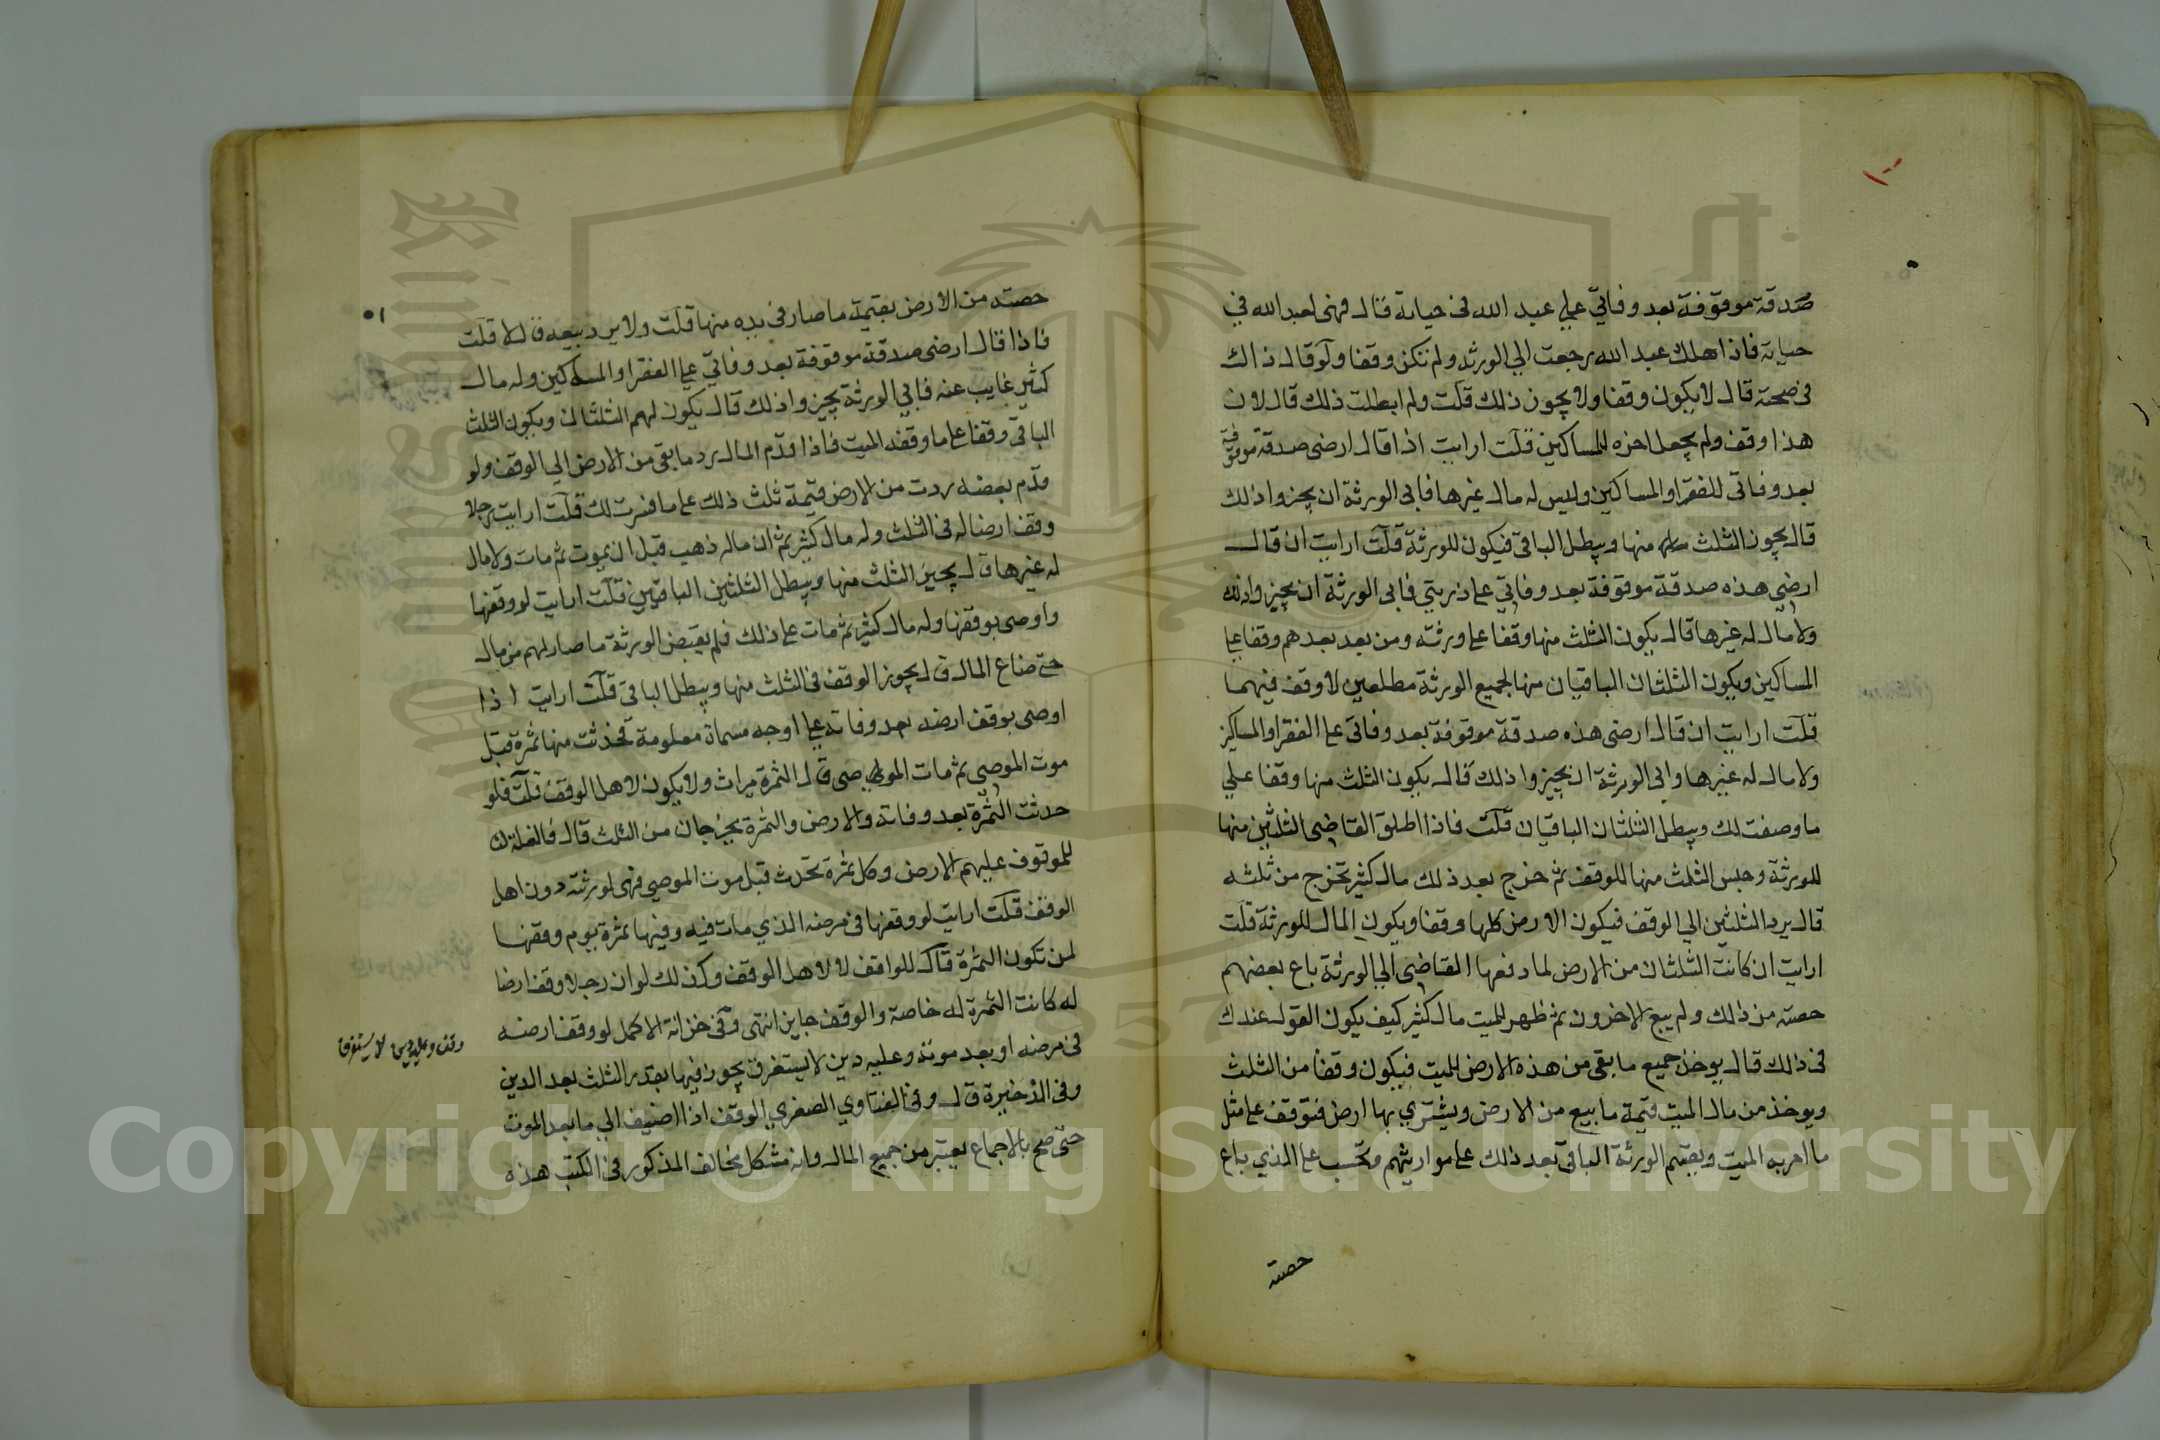 صدقة موقوفة بعد وفاتي علي عبد الله في حياته قال فهى لعبد الله في
حياته فاذا هلك عبد الله رجعت الي الورثه ولم تكن وقفا ولو قال ذالك
في صحته قال لا يكون وقفا ولا يجوز ذلك قلت ولم ابطلت ذلك قال لان
هذا وقف ولم يجعل اخره للمساكين قلت ارايت اذا قال ارضى صدقة موقوفة
بعد وفاتي للفقرا والمساكين وليس له مال غيرها فابى الورثة ان يجيزوا ذلك
قال يجوز الثلث منها ويبطل الباقي فيكون للورثة قلت ارايت ان قال
ارضي هذه صدقة موقوفة بعد وفاتي علي ذريتي فابى الورثة ان يجيزوا ذلك
ولا مال له غيرها قال يكون الثلث منها وقفا علي ورثته ومن بعد بعدهم وقفا علي
المساكين ويكون الثلثان الباقيان منها لجميع الورثة مطلعين لا وقف فيهما
قلت ارايت ان قال ارضى هذه صدقة موقوفة بعد وفاتي علي الفقرا والمساكين
ولا مال له غيرها وابى الورثة ان يجيزوا ذلك قال يكون الثلث منها وقفا علي
ما وصفت لك ويبطل الثلثان الباقيان قلت فاذا اطلق القاضي الثلثين منها
للورثة وحبس الثلث منها للوقف ثم خرج بعد ذلك مال كثير تخرج من ثلثه
قال يرد الثلثين الي الوقف فيكون الارض كلها وقفا ويكون المال للورثة قلت
ارايت ان كانت الثلثان من الارض لما دفعها القاضي الي الورثة باع بعضهم
حصته من ذلك ولم يبع الاخرون ثم ظهر للميت مال كثير كيف يكون القول عندك
في ذلك قال يوخذ جميع ما بقي من هذه الارض للميت فيكون وقفا من الثلث
ويوخذ من مال الميت قيمة ما بيع من الارض ويشتري بها ارض فتوقف علي مثل
ما امر به الميت ويقسم الورثة الباقي بعد ذلك علي مواريثهم ويحسب علي الذي باع
حصته
٥١
حصته من الارض بقيمة ما صار في يده منها قلت ولا يرد بيعه قال لا قلت
فاذا قال ارضى صدقة موقوفة بعد وفاتي علي الفقرا والمساكين وله مال
كثير غايب عنه فابي الورثة يجيزوا ذلك قال يكون لهم الثلثان ويكون الثلث
الباقي وقفا علي ما وقفه الميت فاذا قدم المال رد ما بقي من الارض الي الوقف ولو
قدم بعضه ردت من الارض قيمة ثلث ذلك علي ما فسرت لك قلت ارايت رجلا
وقف ارضا له في الثلث وله مال كثير ثم ان ماله ذهب قبل ان يموت ثم مات ولا مال
له غيرها قال يجيز الثلث منها ويبطل الثلثين الباقيين قلت ارايت لو وقفها
واوصى بوقفها وله مال كثير ثم مات علي ذلك فلم يقبض الورثة ما صار لهم من مال
حتي ضاع المال قال يجوز الوقف في الثلث منها ويبطل الباقي قلت ارايت اذا
اوصى بوقف ارضه بعد وفاته علي اوجه مسماة معلومة فحدثت منها ثمرة قبل
موت الموصي ثم مات الموصى قال الثمرة ميراث ولا يكون لاهل الوقف قلت فلو
حدثت الثمرة بعد وفاته والارض والثمرة يخرجان من الثلث قال فالغلة
للموقوف عليهم الارض وكل ثمرة تحدث قبل موت الموصي فهى لورثته دون اهل
الوقف قلت ارايت لو وقفها في مرضه الذي مات فيه وفيها ثمرة يوم وقفها
لمن تكون الثمرة قال للواقف لا لاهل الوقف وكذلك لو ان رجلا وقف ارضا
له كانت الثمرة له خاصة والوقف جايز انتهى وفي خزانة الاكمل لو وقف ارضه
في مرضه او بعد موته وعليه دين لا يستغرق يجوز فيها بقدر الثلث بعد الدين
وفي الذخيرة قال وفي الفتاوي الصغري الوقف اذا اضيف الي ما بعد الموت
حتى صح بالاجماع يعتبر من جميع المال وانه مشكل يخالف المذكور في الكتب هذه
وقف وعليه دين لا يستغرق
King Saud University
1957
Copyright © King Saud University